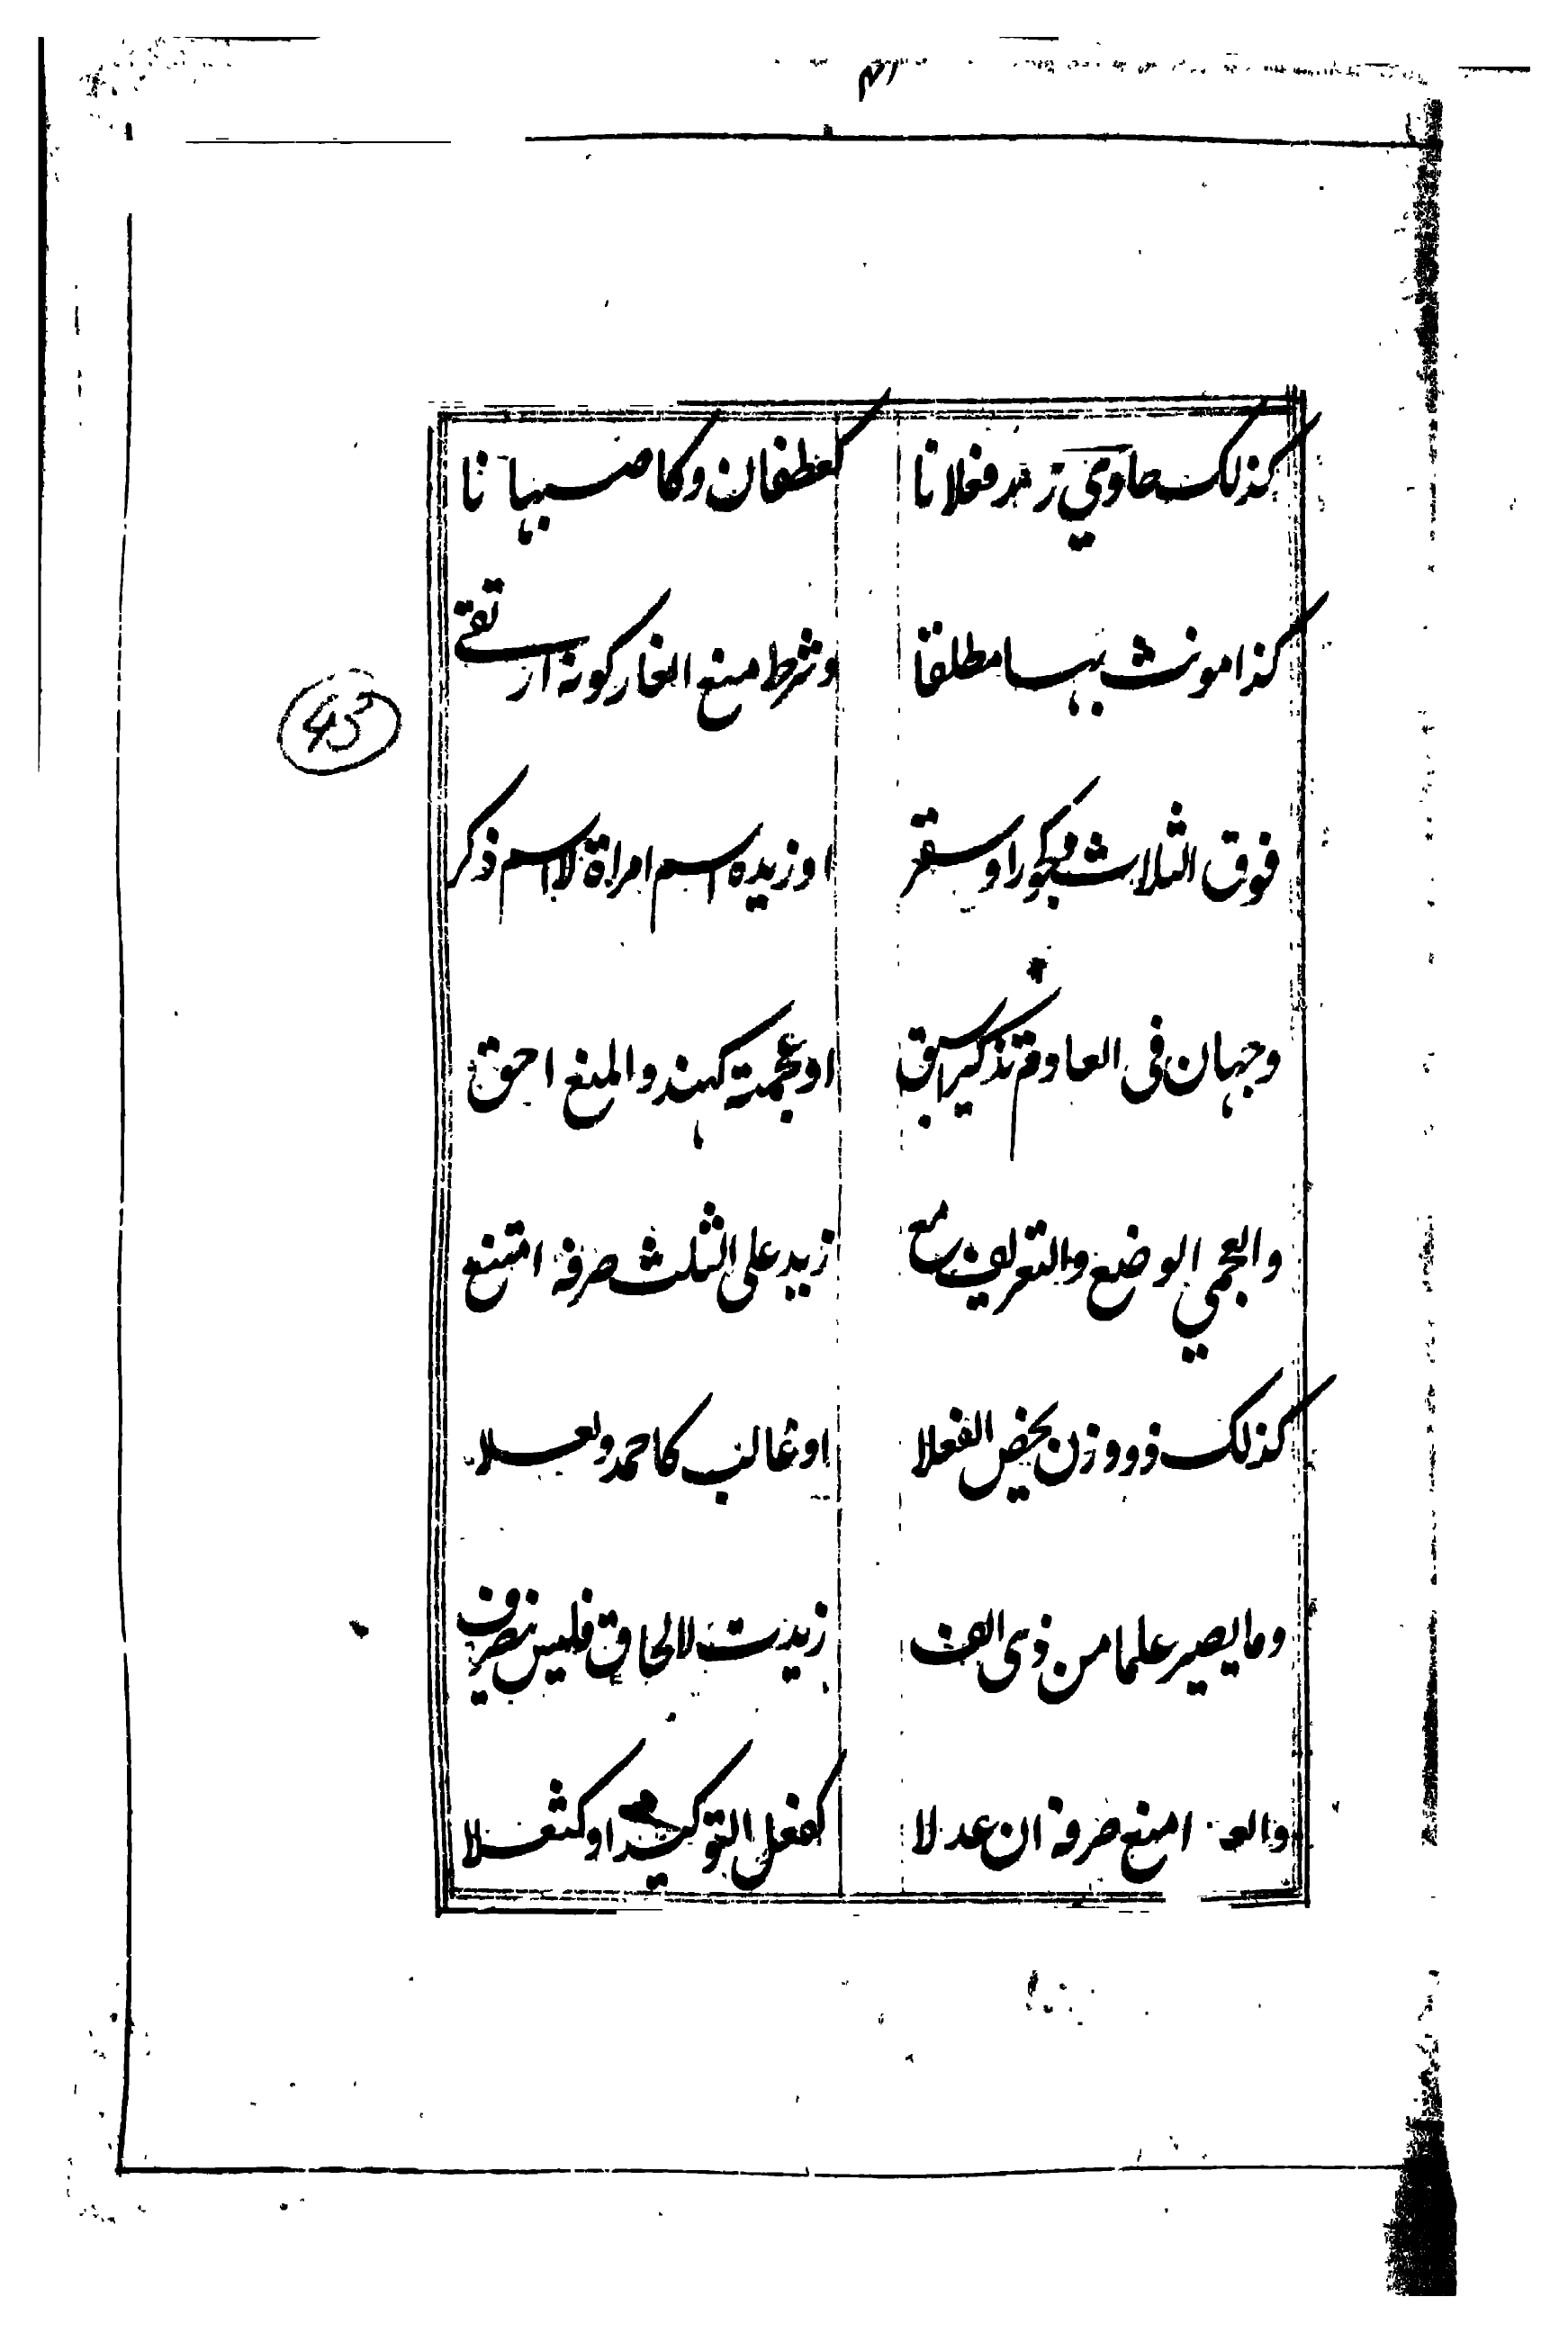 ٤١
كذلك حاوي زائد فعلانا كغطفان وكاصبهانا
كذا مونث بهاء مطلقا وشرط منع العار كونه ارتقى
فوق الثلاث او كجور او سقر او زيد اسم امراة لا اسم ذكر
43
وجهان فى العادم تذكيرا سبق او عجمة كهند والمنع احق
والعجمي الوضع والتعريف مع زيد على الثلث صرفه امتنع
كذلك ذو وزن يخص الفعلا او غالب كاحمد ويعلا
وما يصير علما من ذى الف زيدت لالحاق فليس ينصرف
والعلم امنع صرفه ان عدلا كفعل التوكيد او كثعلا